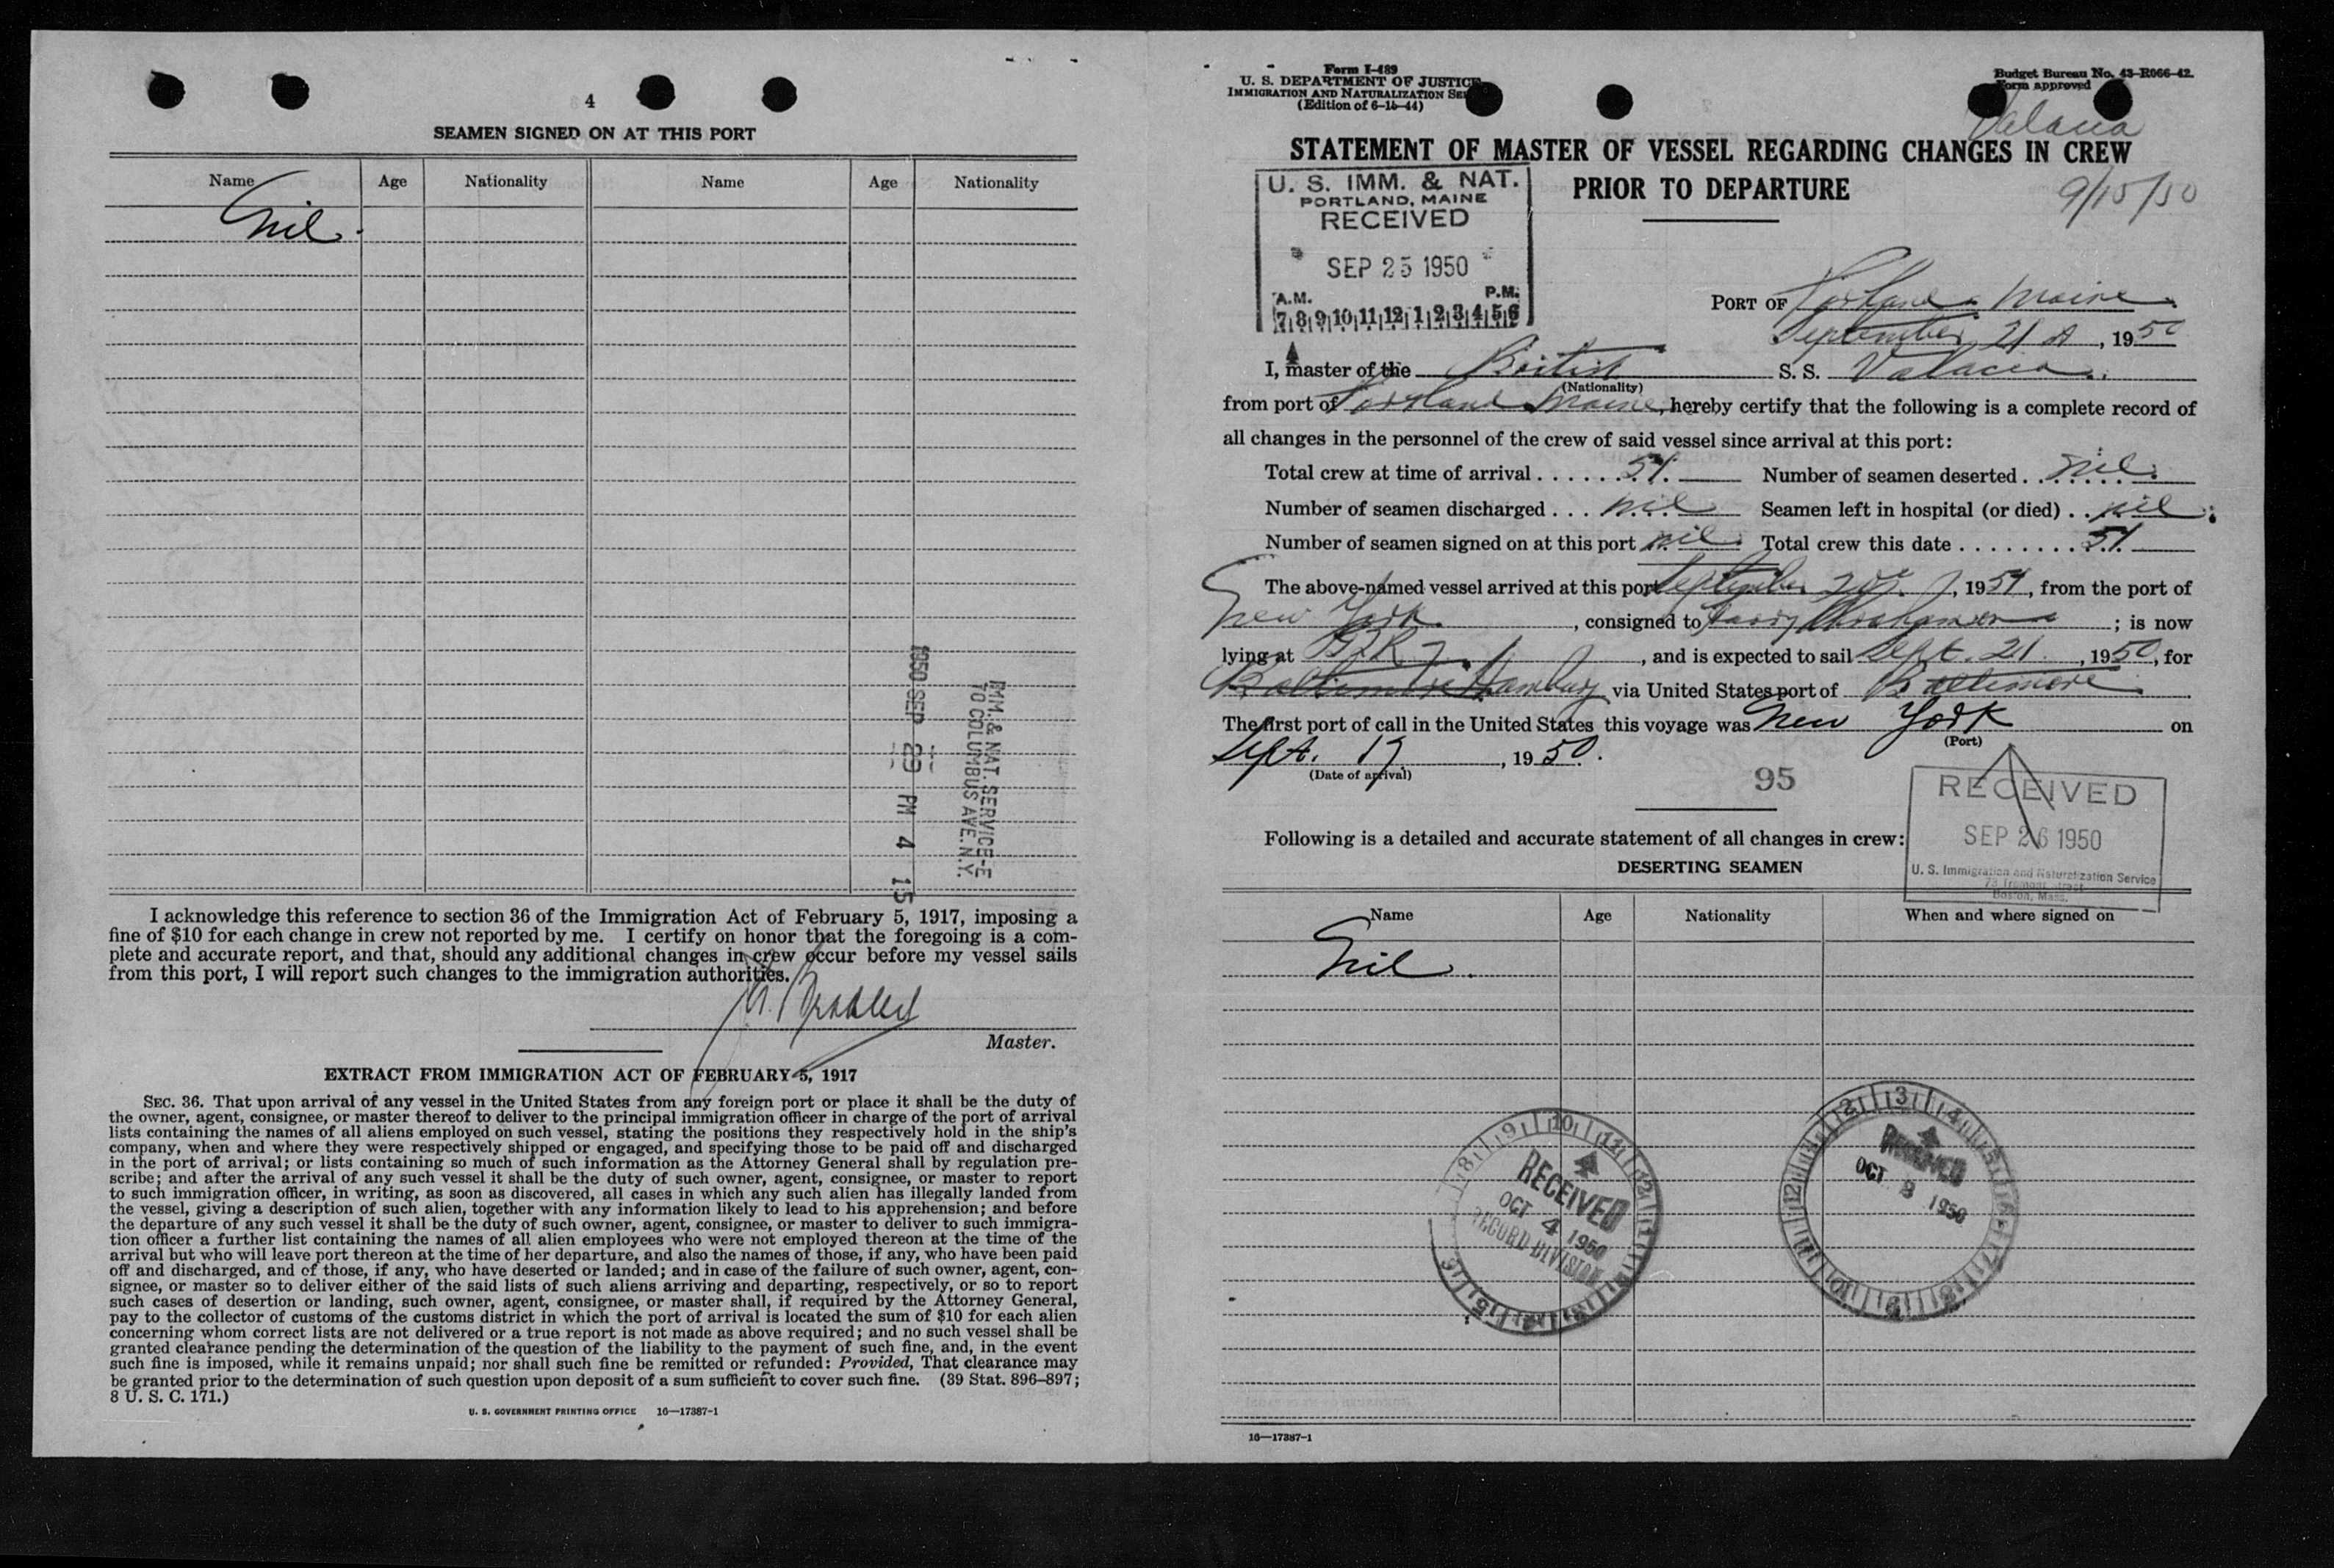 4
SEAMEN SIGNED ON AT THIS PORT
Name Age Nationality Name Age Nationality
Nil.
1950 SEP 29 PM 4 15
IMM. & NAT. SERVICE-E
TO COLUMBUS AVE. N.Y.
I acknowledge this reference to section 36 of the Immigration Act of February 5, 1917, imposing a
fine of $10 for each change in crew not reported by me. I certify on honor that the foregoing is a com-
plete and accurate report, and that, should any additional changes in crew occur before my vessel sails
from this port, I will report such changes to the immigration authorities.
Master.
EXTRACT FROM IMMIGRATION ACT OF FEBRUARY 5, 1917
SEC. 36. That upon arrival of any vessel in the United States from any foreign port or place it shall be the duty of
the owner, agent, consignee, or master thereof to deliver to the principal immigration officer in charge of the port of arrival
lists containing the names of all aliens employed on such vessel, stating the positions they respectively hold in the ship's
company, when and where they were respectively shipped or engaged, and specifying those to be paid off and discharged
in the port of arrival; or lists containing so much of such information as the Attorney General shall by regulation pre-
scribe; and after the arrival of any such vessel it shall be the duty of such owner, agent, consignee, or master to report
to such immigration officer, in writing, as soon as discovered, all cases in which any such alien has illegally landed from
the vessel, giving a description of such alien, together with any information likely to lead to his apprehension; and before
the departure of any such vessel it shall be the duty of such owner, agent, consignee, or master to deliver to such immigra-
tion officer a further list containing the names of all alien employees who were not employed thereon at the time of the
arrival but who will leave port thereon at the time of her departure, and also the names of those, if any, who have been paid
off and discharged, and of those, if any, who have deserted or landed; and in case of the failure of such owner, agent, con-
signee, or master so to deliver either of the said lists of such aliens arriving and departing, respectively, or so to report
such cases of desertion or landing, such owner, agent, consignee, or master shall, if required by the Attorney General,
pay to the collector of customs of the customs district in which the port of arrival is located the sum of $10 for each alien
concerning whom correct lists are not delivered or a true report is not made as above required; and no such vessel shall be
granted clearance pending the determination of the question of the liability to the payment of such fine, and, in the event
such fine is imposed, while it remains unpaid; nor shall such fine be remitted or refunded: Provided, That clearance may
be granted prior to the determination of such question upon deposit of a sum sufficient to cover such fine. (39 Stat. 896–897;
8 U. S. C. 171.)
U. S. GOVERNMENT PRINTING OFFICE 16—17387-1
Form I-489
U. S. DEPARTMENT OF JUSTICE
IMMIGRATION AND NATURALIZATION
(Edition of 6-15-44)
Budget Bureau No. 43-R066-42.
Form approved
Valacia
STATEMENT OF MASTER OF VESSEL REGARDING CHANGES IN CREW
PRIOR TO DEPARTURE
9/15/50
U. S. IMM. & NAT.
PORTLAND, MAINE
RECEIVED
SEP 25 1950
A.M. P.M.
7 8 9 10 11 12 1 2 3 4 5 6
PORT OF Portland Maine
September 21st, 1950
I, master of the British S. S. Valacia.
(Nationality)
from port of Portland Maine, hereby certify that the following is a complete record of
all changes in the personnel of the crew of said vessel since arrival at this port:
Total crew at time of arrival . . . . . . 51. Number of seamen deserted . . nil.
Number of seamen discharged . . . nil Seamen left in hospital (or died) . . nil.
Number of seamen signed on at this port nil. Total crew this date . . . . . . . . 51.
The above-named vessel arrived at this port September 20th, 1951, from the port of
New York, consigned to ; is now
lying at , and is expected to sail Sept. 21, 1950, for
Baltimore Hamburg via United States port of Baltimore
The first port of call in the United States this voyage was New York on
(Port)
Sept. 17, 1950.
(Date of arrival)
95
RECEIVED
SEP 26 1950
U. S. Immigration and Naturalization Service
73 Tremont street
Boston, Mass.
Following is a detailed and accurate statement of all changes in crew:
DESERTING SEAMEN
Name Age Nationality When and where signed on
Nil.
RECEIVED
OCT 4 1950
RECORD DIVISION
RECEIVED
OCT 3 1950
16—17387-1